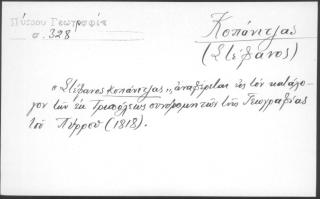 Πύρρου Γεωγραφία
σ. 328
Κοπάνιτζας
(Στέφανος)
"Στέφανος Κοπάνιτζας", αναφέρεται εις τον κατάλο-
γον των εκ Τριπόλεως συνδρομητών της Γεωγραφίας
του Πύρρου (1818).